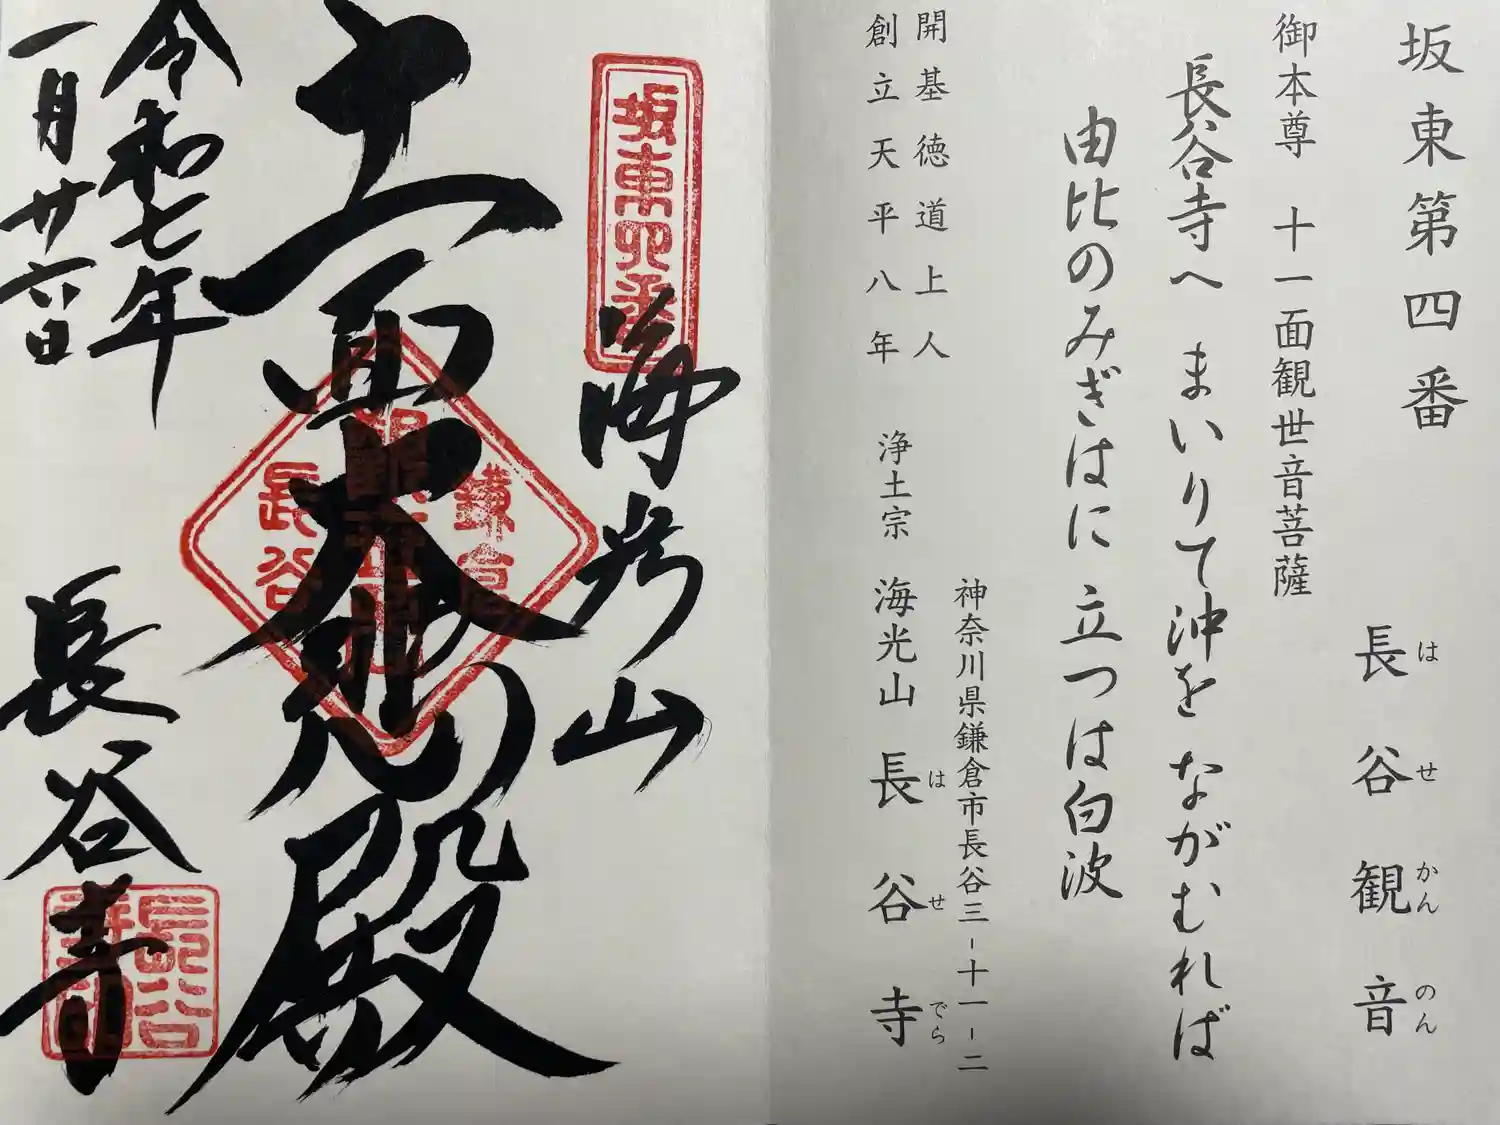 坂東第四番
長谷観音
はせかんのん
御本尊 十一面観世音菩薩
長谷寺へ まいりて沖を ながむれば
由比のみぎはに 立つは白波
開基徳道上人
創立天平八年
神奈川県鎌倉市長谷三-十一-二
浄土宗 海光山 長谷寺
はせでら
坂東四番
海光山
十一面大悲殿
鎌倉
長谷
令和七年
一月廿六日
長谷寺
長谷